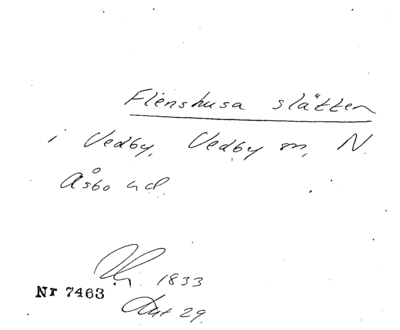 Flenshusa slätten
i Vedby, Vedby sn, N.
Åsbo hd.
1833
Nr 7463
29.